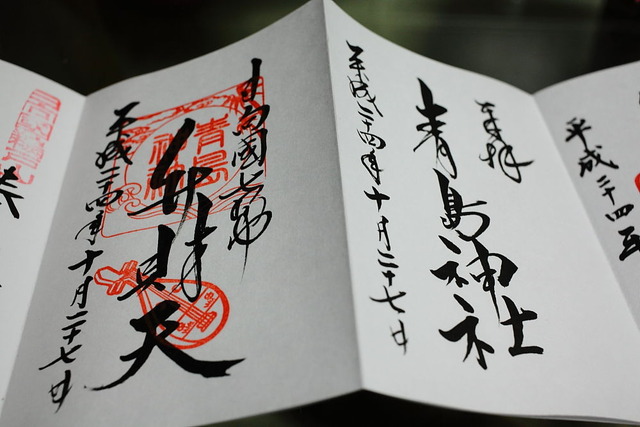 平成二十四年
奉拝
青島神社
平成二十四年十月二十七日
日向國七福
弁財天
青島
神社
平成二十四年十月二十七日